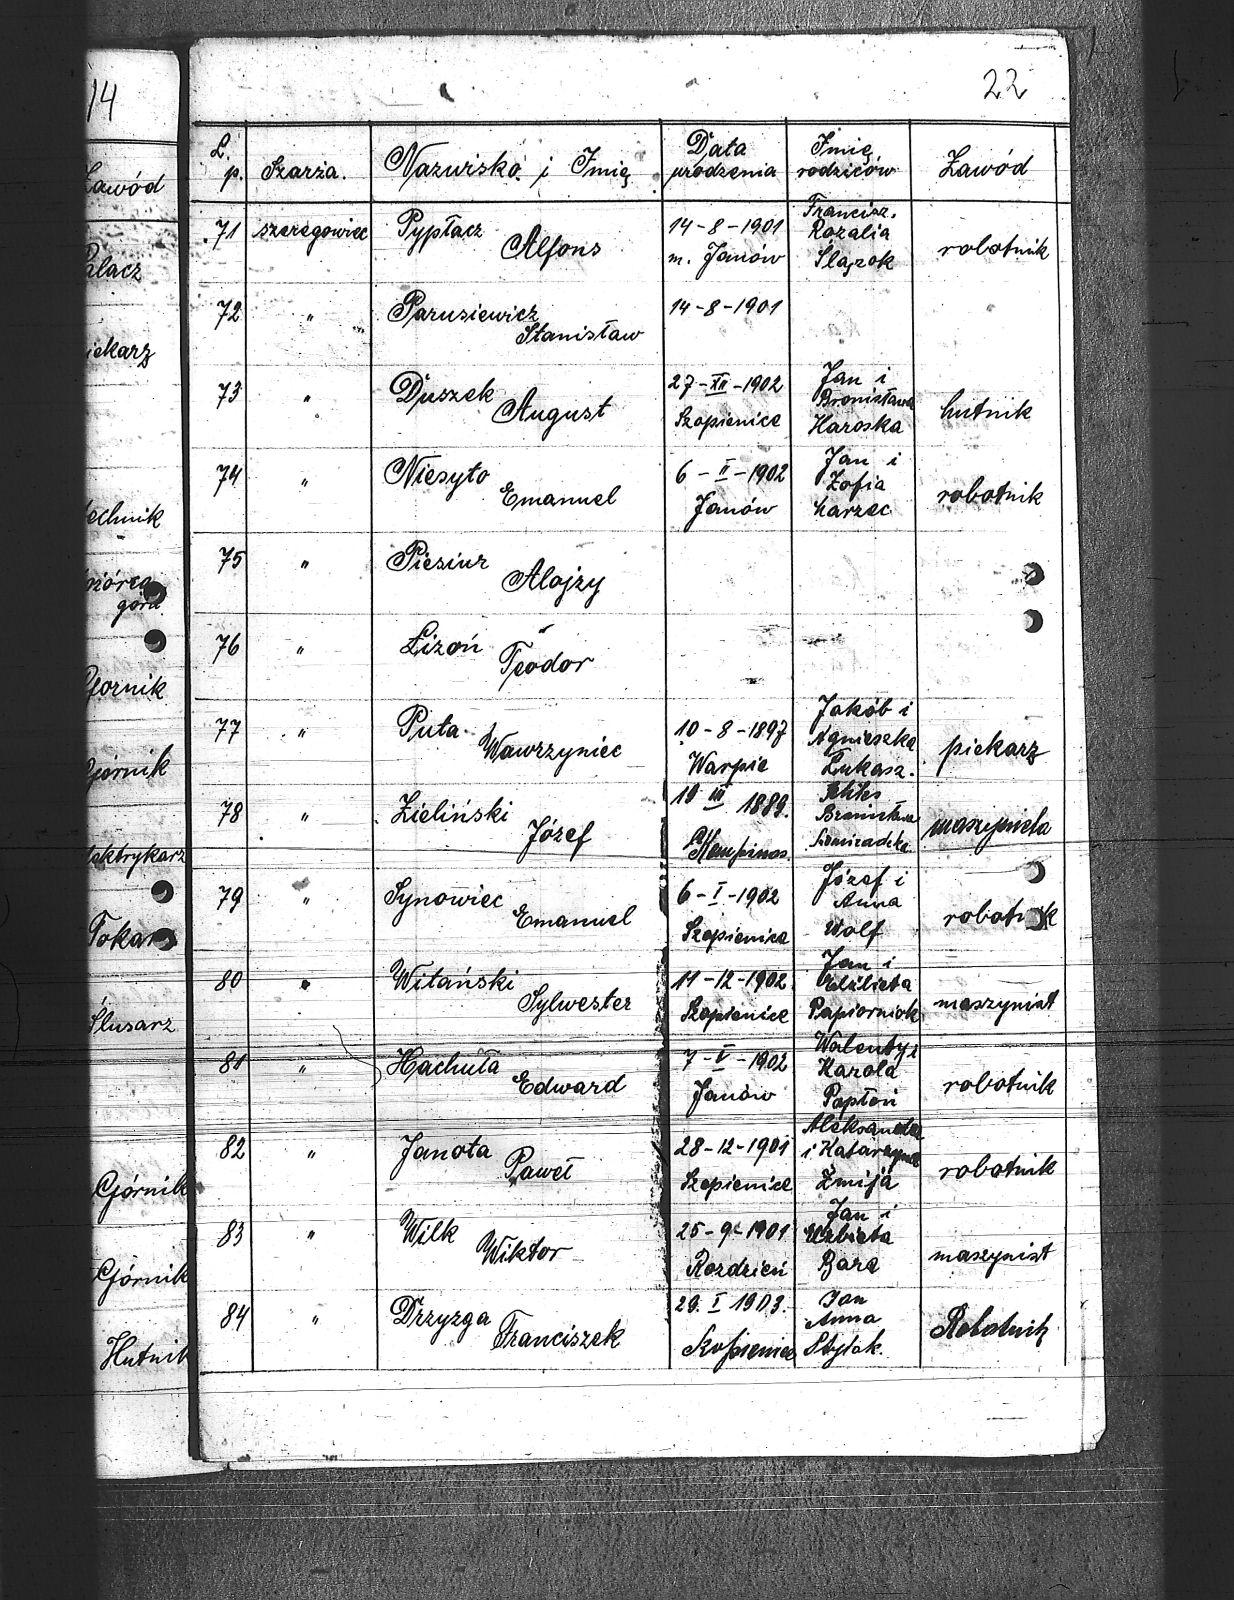 14
Zawód
Palacz
piekarz
technik
górn.
Górnik
Górnik
elektrykarz
Tokarz
Ślusarz
Górnik
Górnik
Hutnik
22
L. p. Szarża. Nazwisko i Imię Data urodzenia Imię rodziców Zawód
71 szeregowiec Pypłacz Alfons 14-8-1901 m. Janów Francisz. Rozalia Ślązok robotnik
72 " Parusiewicz Stanisław 14-8-1901
73 " Duszek August 27-XII-1902 Szopienice Jan i Bronisława Haroska hutnik
74 " Niesyto Emanuel 6-II-1902 Janów Jan i Zofia Marzec robotnik
75 " Piesiur Alojzy
76 " Lizoń Teodor
77 " Puta Wawrzyniec 10-8-1897 Warpie Jakób i Agnieszka Łukasz. piekarz
78 " Zieliński Józef 19 III 1889. Kempinos. Bronisława maszynista
79 " Synowiec Emanuel 6-I-1902 Szopienice Józef i Anna Wolf robotnik
80 " Witański Sylwester 11-12-1902 Szopienice Jan i Elżbieta Papiorniok maszynist
81 " Hachuła Edward 7-V-1902 Janów Walenty i Karola Paploń robotnik
82 " Janota Paweł 28-12-1901 Szopienice Aleksander i Katarzyna Żmija robotnik
83 " Wilk Wiktor 25-9-1901 Rozdzień Jan i Elżbieta Bara maszynist
84 " Drzyzga Franciszek 29. I 1903. Szopienice Jan Anna Robotnik